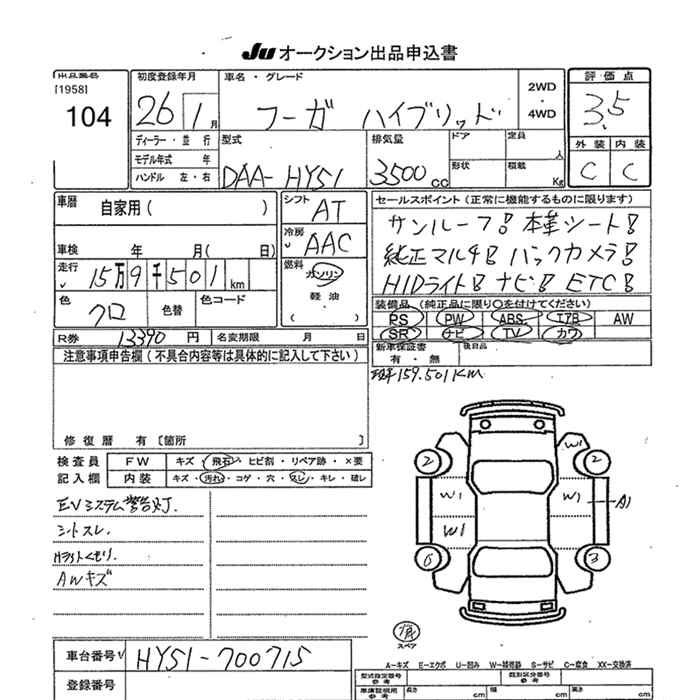 Ju オークション出品申込書
出品番号
[1958]
104
初度登録年月
26 1 月
車名・グレード
フーガ ハイブリッド
2WD
・
4WD
評価点
3.5
ディーラー・並行
モデル年式 年
ハンドル 左・右
型式
DAA-HY51
排気量
3500 cc
ドア
形状
定員
人
積載
Kg
外装 内装
C C
車歴
自家用( )
シフト
AT
セールスポイント(正常に機能するものに限ります)
サンルーフ! 本革シート!
純正マルチ! バックカメラ!
HIDライト! ナビ! ETC!
車検 年 月( 日)
冷房
AAC
走行
15万9千501km
燃料
ガソリン
軽油
( )
色
クロ
色替
色コード
装備品(純正品に限り○を付けてください)
PS PW ABS エアB AW
SR ナビ TV カワ
R券 13390 円
名変期限 月 日
新車保証書
有・無
後日品
注意事項申告欄(不具合内容等は具体的に記入して下さい)
159.501KM
修復歴 有 [箇所 ]
検査員
記入欄
FW キズ・飛石・ヒビ割・リペア跡・×要
内装 キズ・汚れ・コゲ・穴・スレ・キレ・破レ
EVシステム警告灯.
シートスレ.
AWキズ
2 W1 2
W1 W1 A1
W1
6 3
スペア
車台番号 HY51-700715
登録番号
A-キズ E-エクボ U-凹み W-補修跡 S-サビ C-腐食 XX-交換済
型式指定番号
参考
類別区分番号
参考
長さ cm 幅 cm 高さ cm